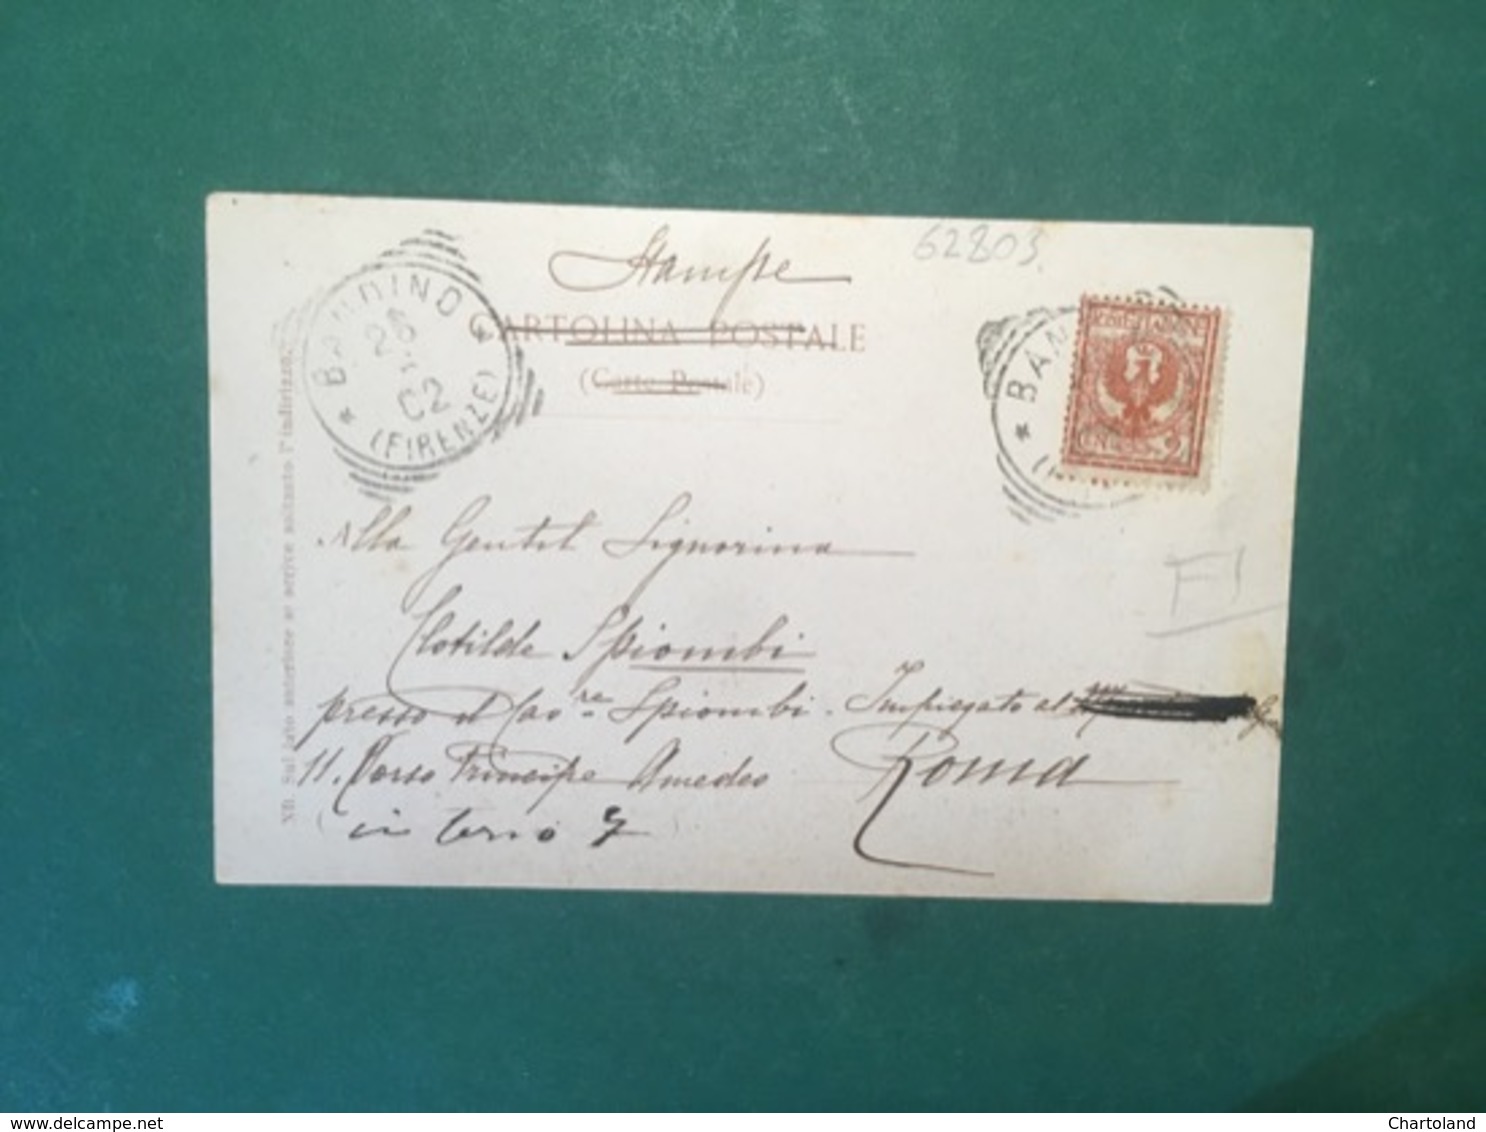 62803
Stampe
CARTOLINA POSTALE
(Carte Postale)
BANDINO
26
02
(FIRENZE)
BAN
2
NB. Sul lato anteriore si scrive soltanto l'indirizzo.
Alla Gentil Signorina
Clotilde Spiombi
presso il Cav.re Spiombi - Impiegato al
11. Corso Principe Amedeo Roma
(interno 7)
www.delcampe.net
Chartoland